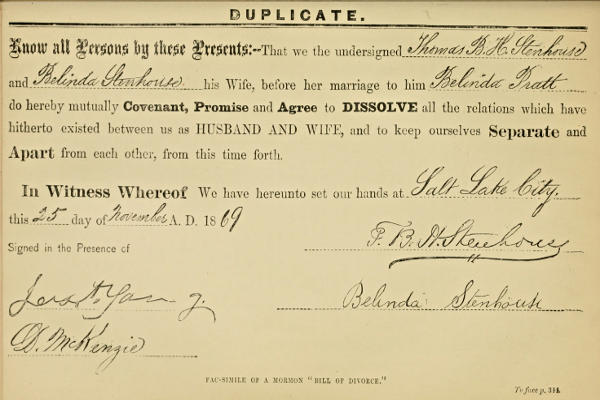 DUPLICATE.
Know all Persons by these Presents:--That we the undersigned Thomas B. H. Stenhouse
and Belinda Stenhouse his Wife, before her marriage to him Belinda Pratt
do hereby mutually Covenant, Promise and Agree to DISSOLVE all the relations which have
hitherto existed between us as HUSBAND AND WIFE, and to keep ourselves Separate and
Apart from each other, from this time forth.
In Witness Whereof We have hereunto set our hands at Salt Lake City.
this 25 day of November A. D. 1869
T. B. H. Stenhouse
Signed in the Presence of
Belinda Stenhouse
D. McKenzie
FAC-SIMILE OF A MORMON "BILL OF DIVORCE."
To face p. 314.